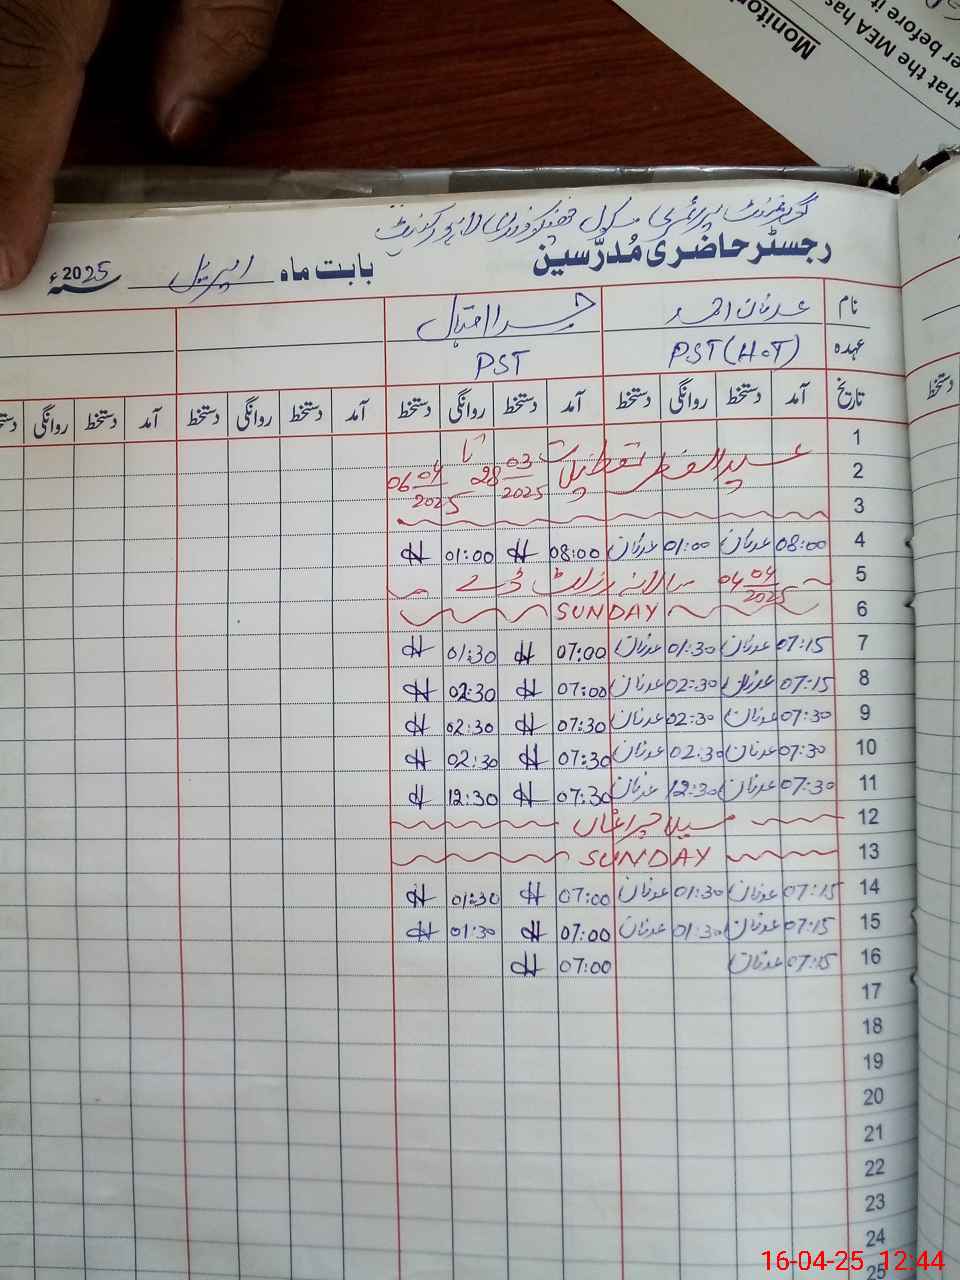 Monitori
that the MEA has
er before it
گورنمنٹ پرائمری سکول لاہور کینٹ
رجسٹر حاضری مُدرّسین بابت ماہ اپریل 2025ء
نام عدنان احمد
عہدہ PST (H.T) PST
تاریخ آمد دستخط روانگی دستخط آمد دستخط روانگی دستخط آمد دستخط روانگی دستخط آمد دستخط روانگی دستخط
1
2 عید الفطر تعطیلات 28 03/2025 تا 06 04/2025
3
4 08:00 عدنان 01:00 عدنان 08:00 H 01:00 H
5 04 04/2025 سالانہ رزلٹ ڈے
6 SUNDAY
7 07:15 عدنان 01:30 عدنان 07:00 H 01:30 H
8 07:15 عدنان 02:30 عدنان 07:00 H 02:30 H
9 07:30 عدنان 02:30 عدنان 07:30 H 02:30 H
10 07:30 عدنان 02:30 عدنان 07:30 H 02:30 H
11 07:30 عدنان 12:30 عدنان 07:30 H 12:30 H
12 میلہ چراغاں
13 SUNDAY
14 07:15 عدنان 01:30 عدنان 07:00 H 01:30 H
15 07:15 عدنان 01:30 عدنان 07:00 H 01:30 H
16 07:15 عدنان 07:00 H
17
18
19
20
21
22
23
24
25
دستخط
16-04-25 12:44